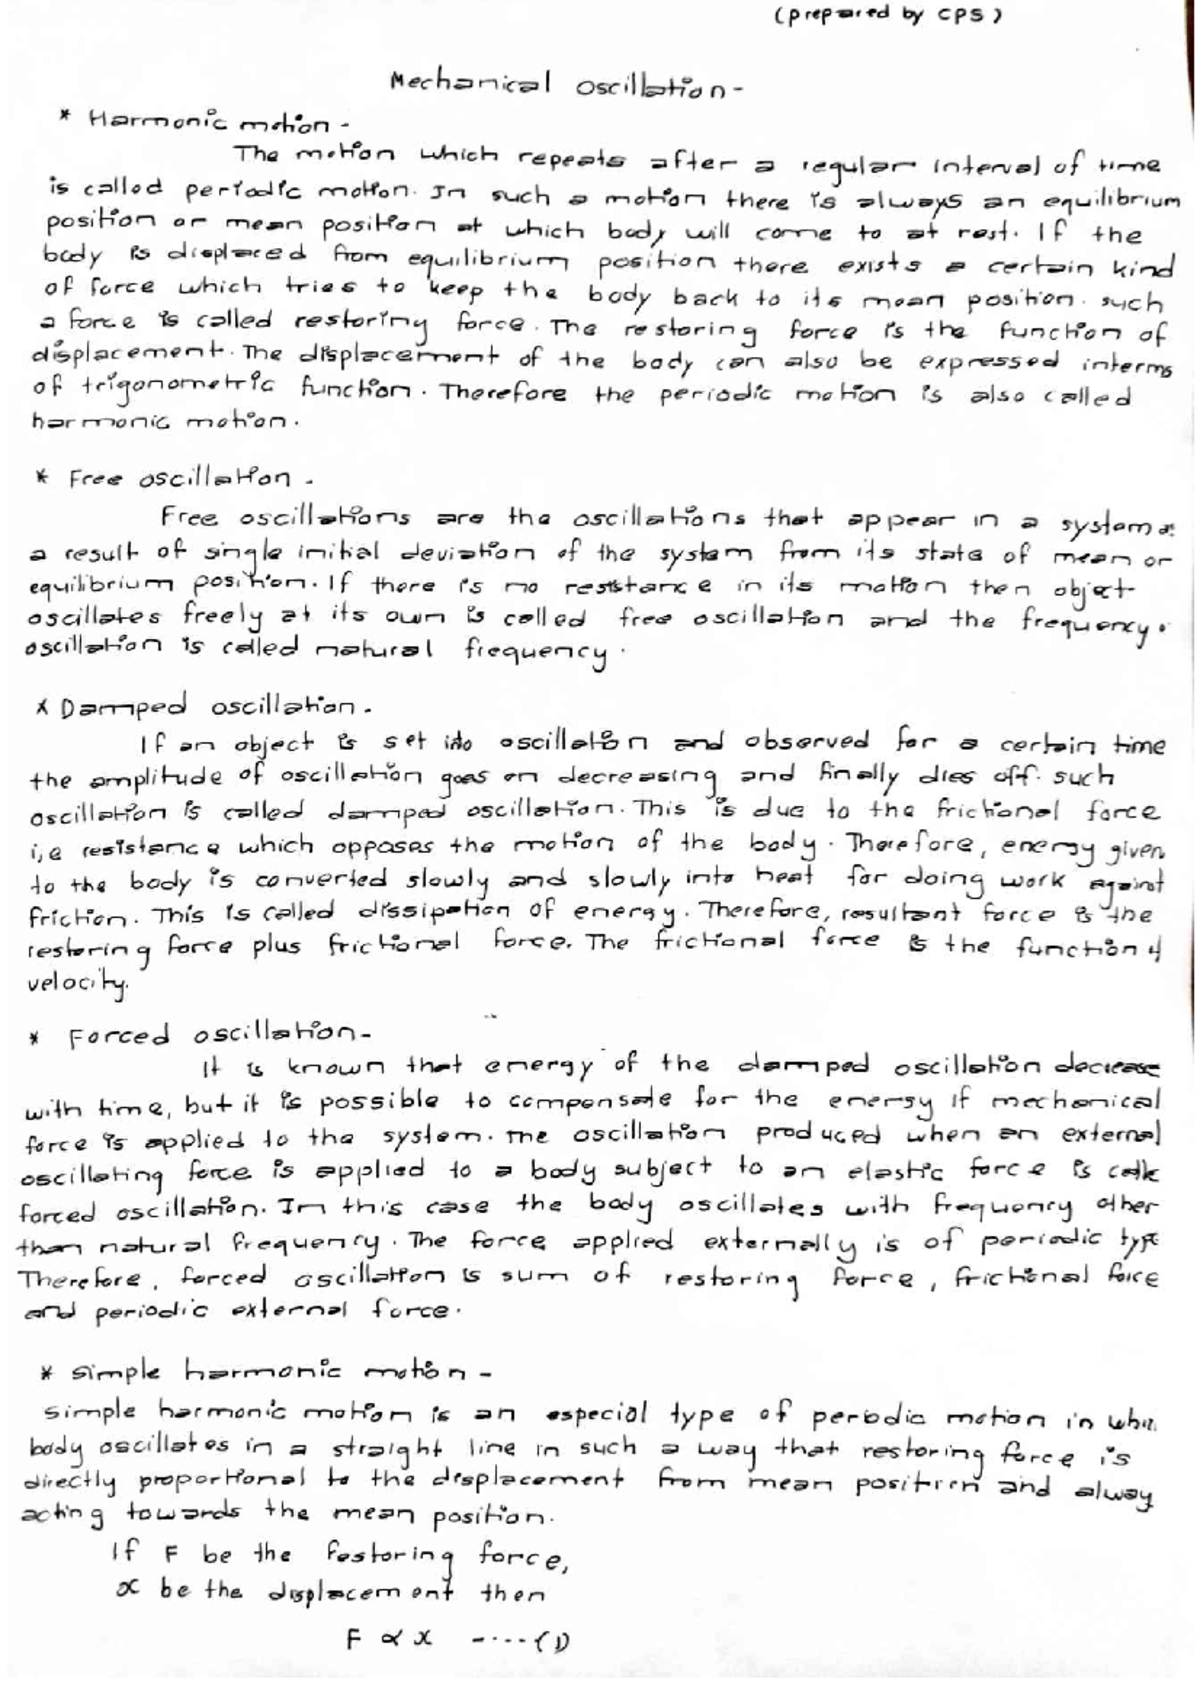 (prepared by CPS)
Mechanical oscillation-
* Harmonic motion -
The motion which repeats after a regular interval of time
is called periodic motion. In such a motion there is always an equilibrium
position or mean position at which body will come to at rest. If the
body is displaced from equilibrium position there exists a certain kind
of force which tries to keep the body back to its mean position. such
a force is called restoring force. The restoring force is the function of
displacement. The displacement of the body can also be expressed interms
of trigonometric function. Therefore the periodic motion is also called
harmonic motion.
* Free oscillation -
Free oscillations are the oscillations that appear in a system
a result of single initial deviation of the system from its state of mean or
equilibrium position. If there is no resistance in its motion then object
oscillates freely at its own is called free oscillation and the frequency
oscillation is called natural frequency.
* Damped oscillation.
If an object is set into oscillation and observed for a certain time
the amplitude of oscillation goes on decreasing and finally dies off. such
oscillation is called damped oscillation. This is due to the frictional force
i,e resistance which opposes the motion of the body. Therefore, energy given
to the body is converted slowly and slowly into heat for doing work against
friction. This is called dissipation of energy. Therefore, resultant force is the
restoring force plus frictional force. The frictional force is the function of
velocity.
* Forced oscillation-
It is known that energy of the damped oscillation decrease
with time, but it is possible to compensate for the energy if mechanical
force is applied to the system. The oscillation produced when an external
oscillating force is applied to a body subject to an elastic force is
forced oscillation. In this case the body oscillates with frequency other
than natural frequency. The force applied externally is of periodic type
Therefore, forced oscillation is sum of restoring force, frictional force
and periodic external force.
* simple harmonic motion -
simple harmonic motion is an especial type of periodic motion in
body oscillates in a straight line in such a way that restoring force is
directly proportional to the displacement from mean position and alway
acting towards the mean position.
If F be the restoring force,
x be the displacement then
F ∝ x -....(1)